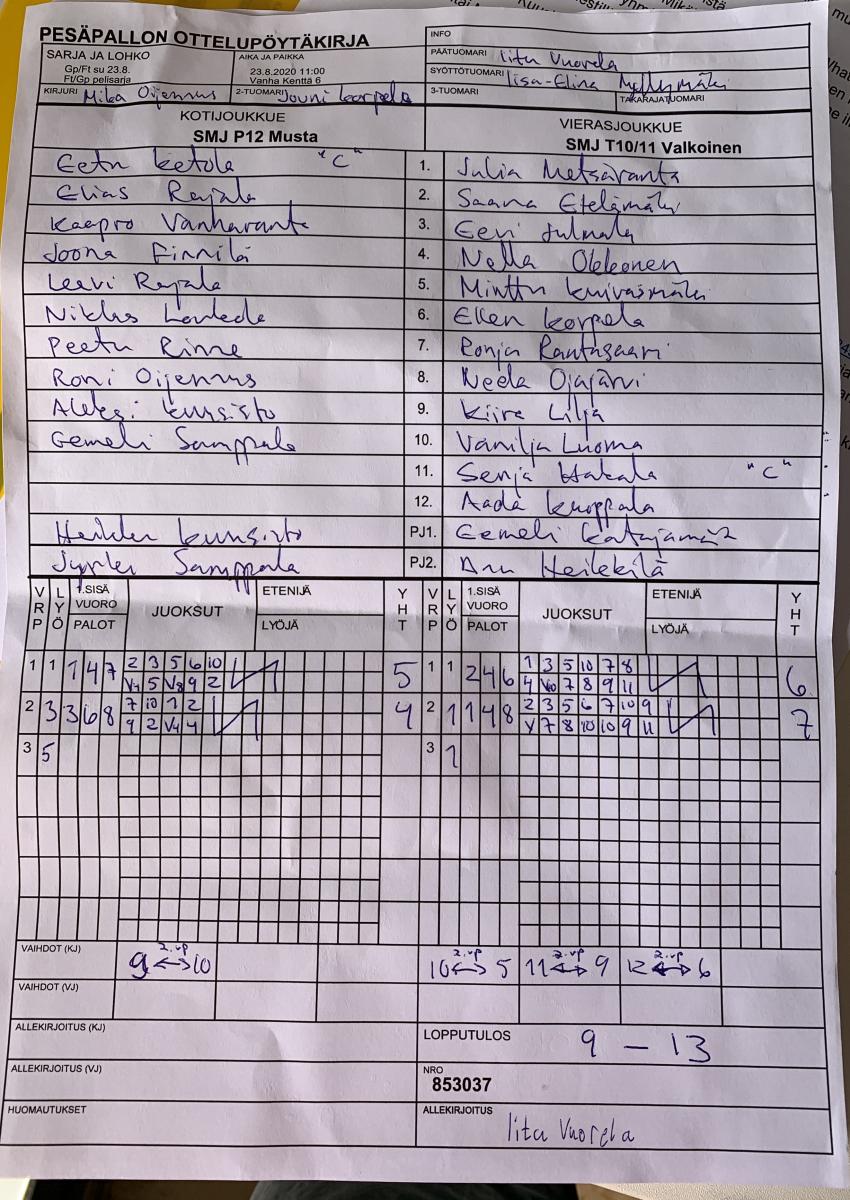 PESÄPALLON OTTELUPÖYTÄKIRJA
INFO
SARJA JA LOHKO
Gp/Ft su 23.8.
Ft/Gp pelisarja
AIKA JA PAIKKA
23.8.2020 11:00
Vanha Kenttä 6
PÄÄTUOMARI Iita Vuorela
SYÖTTÖTUOMARI Iisa-Elina Myllymäki
KIRJURI Mika Oijennus
2-TUOMARI Jouni Korpela
3-TUOMARI
TAKARAJATUOMARI
KOTIJOUKKUE
SMJ P12 Musta
VIERASJOUKKUE
SMJ T10/11 Valkoinen
Eetu Ketola "C" 1. Julia Metsäranta
Elias Rajala 2. Saana Etelämäki
Kaapro Vanharanta 3. Eevi Julmala
Joona Finnilä 4. Nella Okkonen
Leevi Rajala 5. Minttu Kuivasmäki
Niklas 6. Ellen Korpela
Peetu Rinne 7. Ronja Rautasaari
Roni Oijennus 8. Neela Ojajärvi
Aleksi Kuusisto 9. Kiira Lilja
Eemeli Samppala 10. Vanilja Luoma
11. Senja Hakala "C"
12. Aada Kuoppala
Heikki Kuusisto PJ1. Eemeli
Jyrki Samppala PJ2. Anu Heikkilä
VRP LYÖ 1.SISÄ VUORO PALOT JUOKSUT ETENIJÄ LYÖJÄ YHT VRP LYÖ 1.SISÄ VUORO PALOT JUOKSUT ETENIJÄ LYÖJÄ YHT
1 1 1 4 7 2 3 5 6 10 5 1 1 2 4 6 1 3 5 10 7 8 6
V4 5 V8 9 2 4 V10 7 8 9 11
2 3 3 6 8 7 10 1 2 4 2 1 1 4 8 2 3 5 6 7 10 9 7
9 2 V4 4 Y 7 8 10 10 9 11
3 5 3 1
VAIHDOT (KJ) 2.vp 9 ↔ 10 2.vp 10 ↔ 5 2.vp 11 ↔ 9 2.vp 12 ↔ 6
VAIHDOT (VJ)
ALLEKIRJOITUS (KJ)
LOPPUTULOS 9 – 13
ALLEKIRJOITUS (VJ)
NRO
853037
HUOMAUTUKSET
ALLEKIRJOITUS
Iita Vuorela